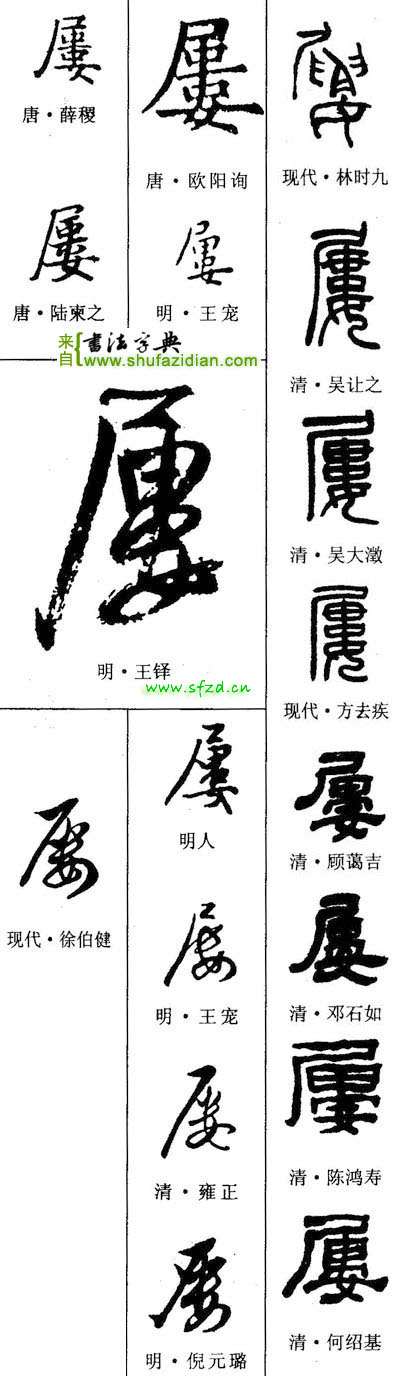 屢
唐·薛稷
屢
唐·陆柬之
屢
唐·欧阳询
屢
明·王宠
来自{書法字典
www.shufazidian.com
屢
明·王铎
www.sfzd.cn
屡
现代·徐伯健
屢
明人
屡
明·王宠
屡
清·雍正
屡
明·倪元璐
屢
现代·林时九
屢
清·吴让之
屢
清·吴大澂
屢
现代·方去疾
屢
清·顾蔼吉
屢
清·邓石如
屢
清·陈鸿寿
屢
清·何绍基